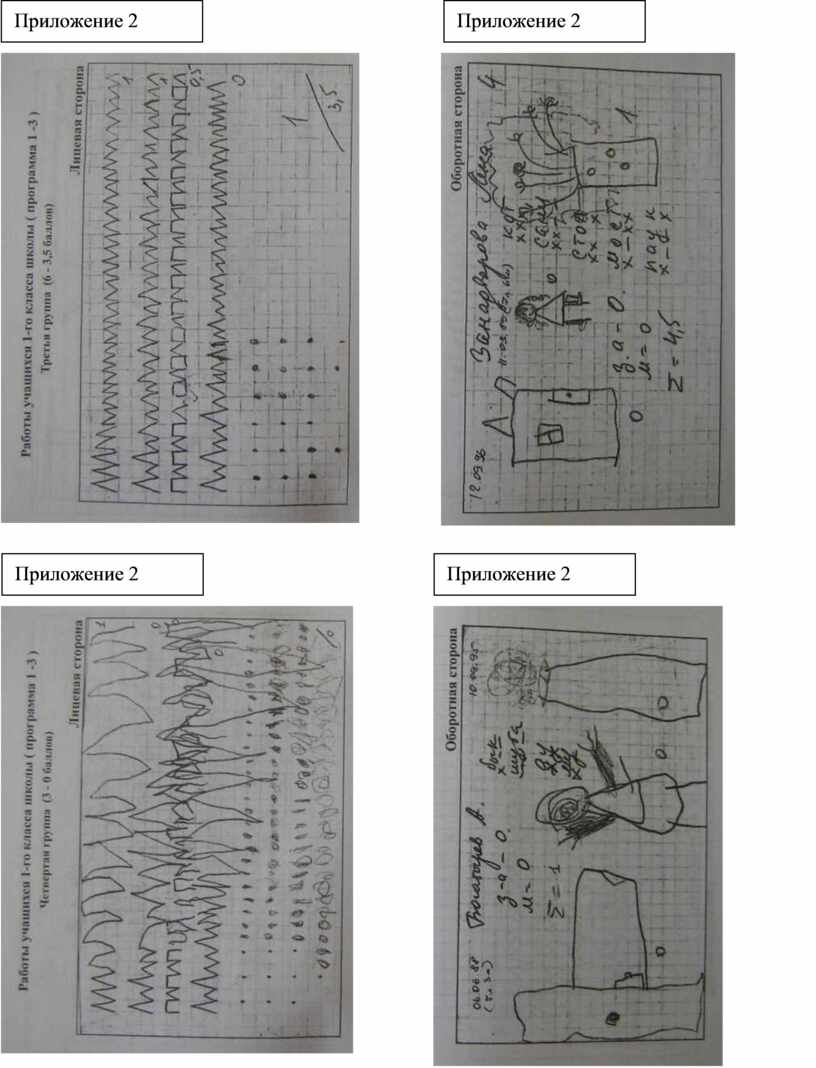 Приложение 2
Работы учащихся 1-го класса школы ( программа 1 -3 )
Третья группа (6 - 3,5 баллов)
Лицевая сторона
1
1
0,5
0
1
3,5
Приложение 2
Оборотная сторона
12 09 96
4
кот
х х
сани
стол
мост
х – х х
паук
0
0
1
з.а – 0.
м = 0
Σ = 4,5
Приложение 2
Работы учащихся 1-го класса школы ( программа 1 -3 )
Четвертая группа (3 - 0 баллов)
Лицевая сторона
1
0
0
0
Приложение 2
Оборотная сторона
10.09.95
06.06 88
з-а – 0.
м = 0
Σ = 1
бык
шуба
0
0
0